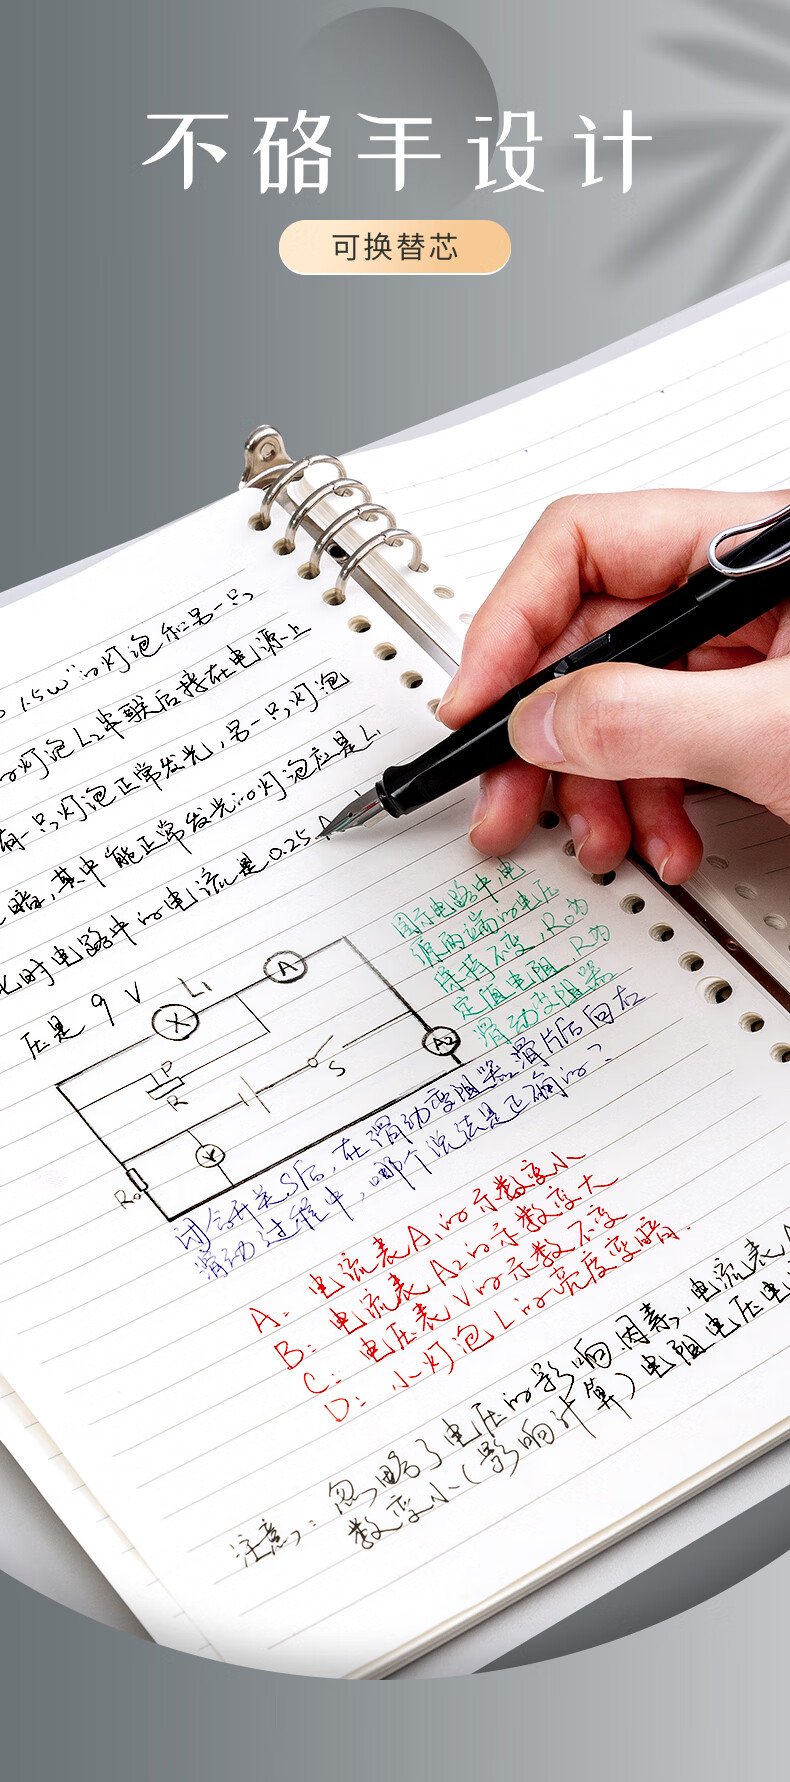 不硌手设计
可换替芯
1.5W"的灯泡和另一只
的灯泡L2串联后接在电源上
有一只灯泡正常发光,另一只灯泡
暗,其中能正常发光的灯泡应是L1
此时电路中的电流是0.25A
压是 9 V
L1
A
X
P
R
S
A2
V
R0
图示电路中,电
源两端的电压
保持不变,R0为
定值电阻,R为
滑动变阻器
闭合开关S后,在滑动变阻器滑片P向右
滑动过程中,哪个说法是正确的?
A: 电流表A1的示数变小
B: 电流表A2的示数变大
C: 电压表V的示数不变
D: 小灯泡L的亮度变暗.
注意: 忽略了电压的影响因素,电流表
数变小(影响计算)电阻电压电